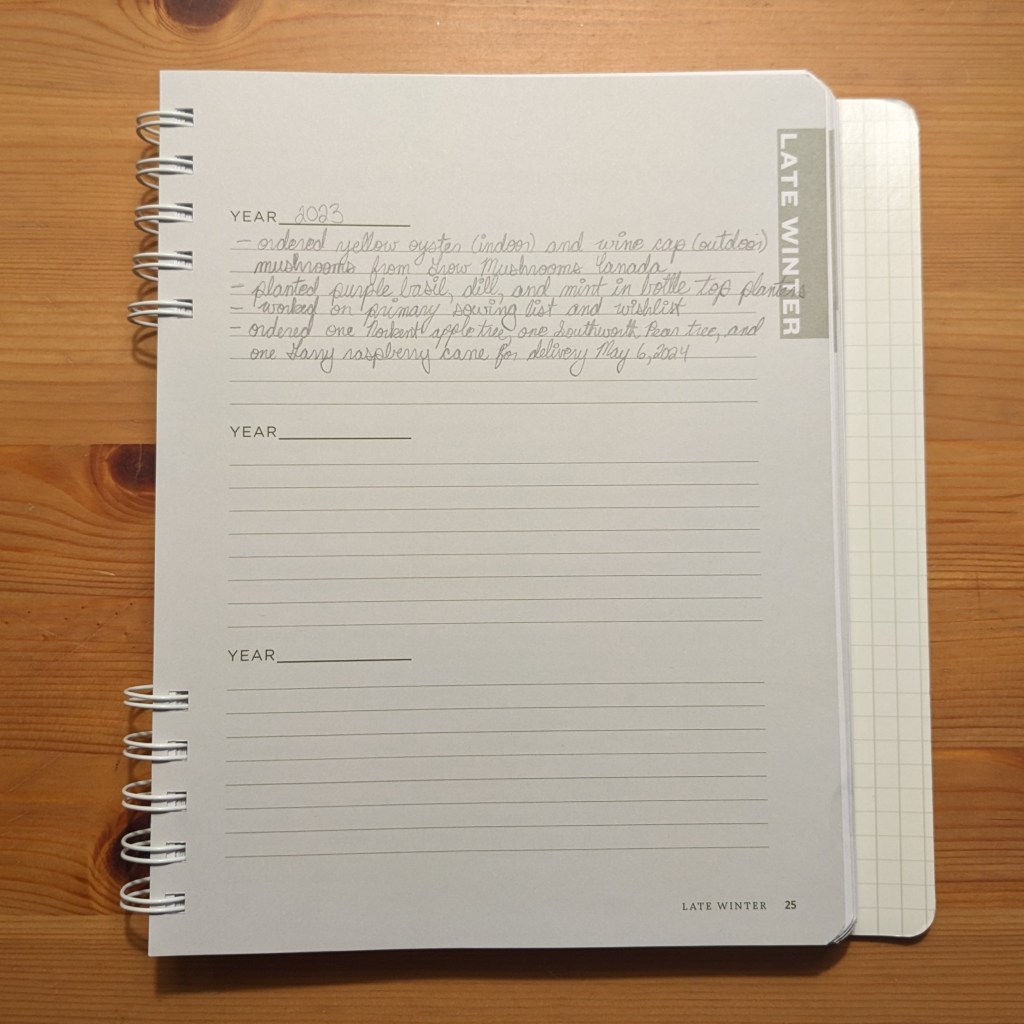 LATE WINTER
YEAR 2023
- ordered yellow oyster (indoor) and wine cap (outdoor)
mushrooms from Grow Mushrooms Canada
- planted purple basil, dill, and mint in bottle top planters
- worked on primary sowing list and wishlist
- ordered one Norkent apple tree, one Southworth Pear tree, and
one raspberry cane for delivery May 6, 2024
YEAR
YEAR
LATE WINTER 25